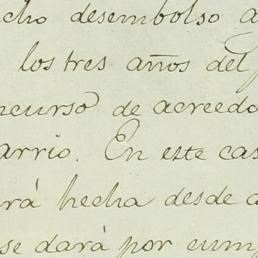 cho desembolso a
los tres años del
ncurso de acreedo
arrio. En este cas
rá hecha desde a
se dará por cump